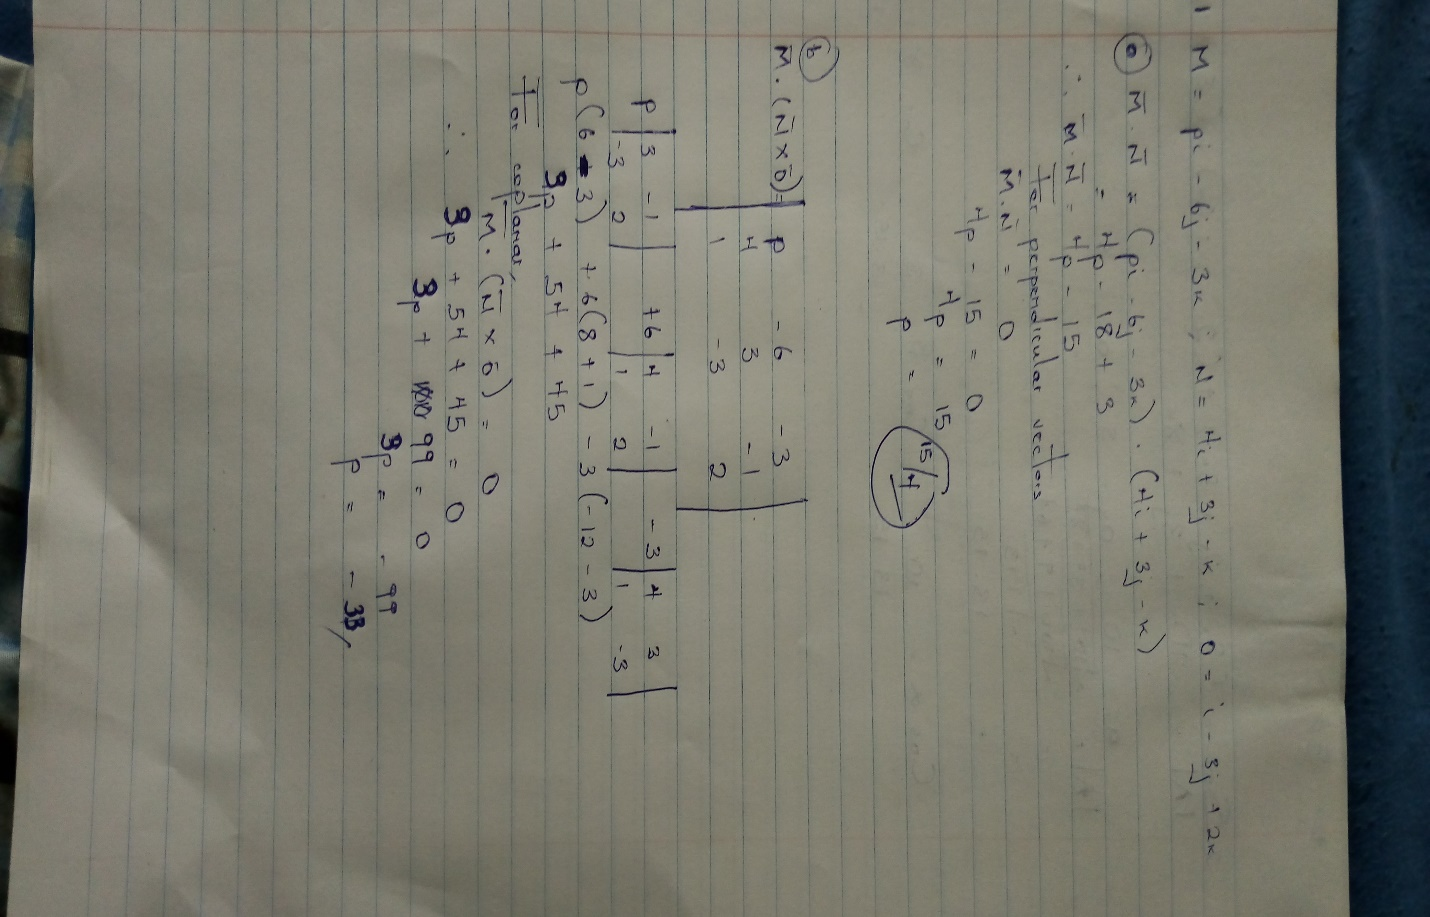 1 M = pi - 6j - 3k ; N = 4i + 3j - k ; O = i - 3j + 2k
(a) M̄ . N̄ = (pi - 6j - 3k) . (4i + 3j - k)
= 4p - 18 + 3
∴ M̄ . N̄ = 4p - 15
For perpendicular vectors
M̄ . N̄ = 0
4p - 15 = 0
4p = 15
p = 15/4
(b)
M̄ . (N̄ x ō) = | p -6 -3 |
| 4 3 -1 |
| 1 -3 2 |
p | 3 -1 | +6 | 4 -1 | -3 | 4 3 |
| -3 2 | | 1 2 | | 1 -3 |
p(6 - 3) + 6(8 + 1) - 3(-12 - 3)
3p + 54 + 45
For coplanar,
M̄ . (N̄ x ō) = 0
∴ 3p + 54 + 45 = 0
3p + 99 = 0
3p = - 99
p = - 33